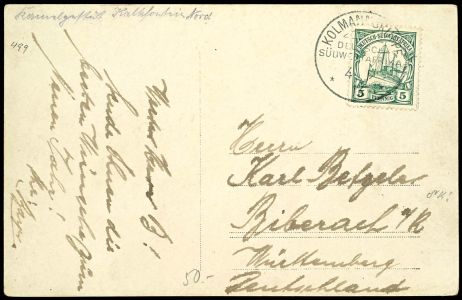 Kamelgestüt Kalkfontein Nord
499
KOLMANSKUPPE
DEUTSCH-
SÜDWESTAFRIKA
DEUTSCH-SÜDWESTAFRIKA
5 PFENNIG 5
Werter Herr B!
sende Ihnen die
besten Wünsche zum
neuen Jahr!
Ihr
Herrn
Karl Befzeler
Biberach a/R
Württemberg
Deutschland
50.-